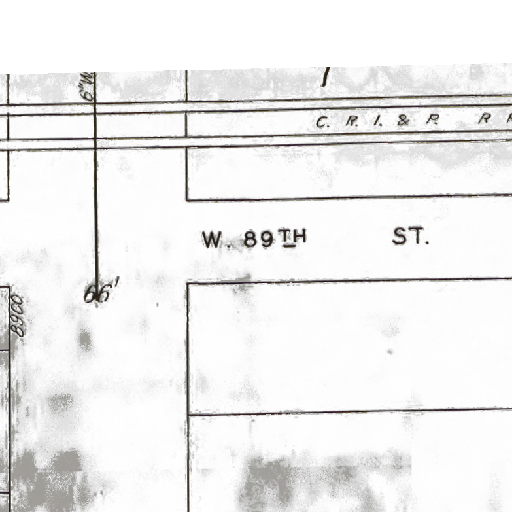 6"W.
C. R. I. & P. R
W. 89TH ST.
66'
8900